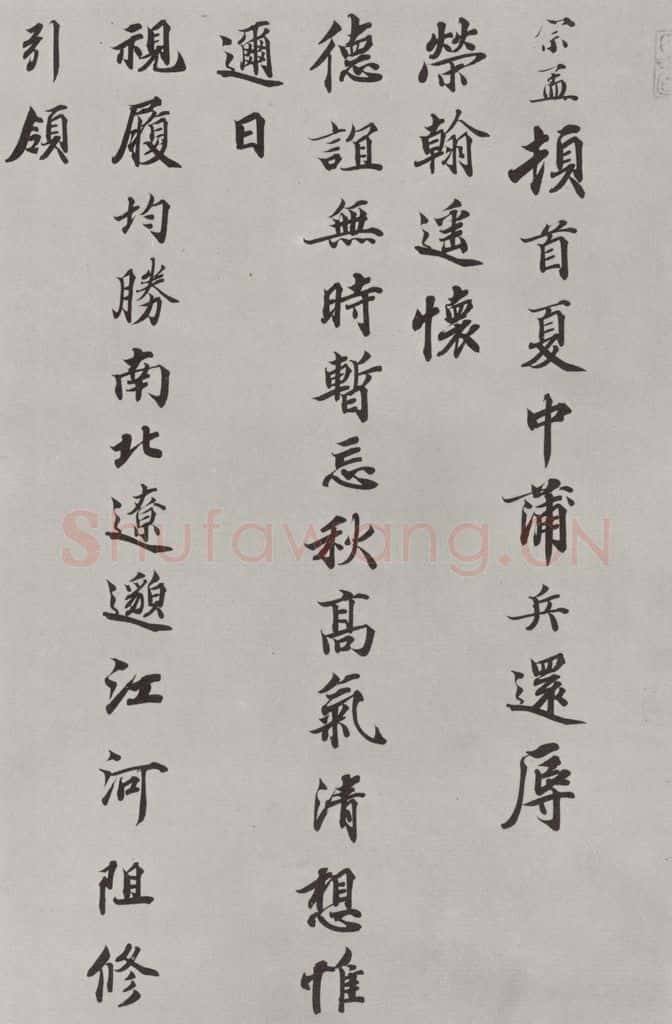 宗孟頓首夏中蒲兵還辱
榮翰遥懷
德誼無時暫忘秋高氣清想惟
邇日
視履均勝南北遼邈江河阻修
引領
Shufawang.CN